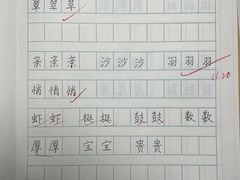 翠 翠 翠
亲 亲 亲 沙 沙 沙 羽 羽 羽
11.20
悄 悄 悄
虾 虾 挺 挺 鼓 鼓 数 数
厚 厚 宝 宝 贵 贵